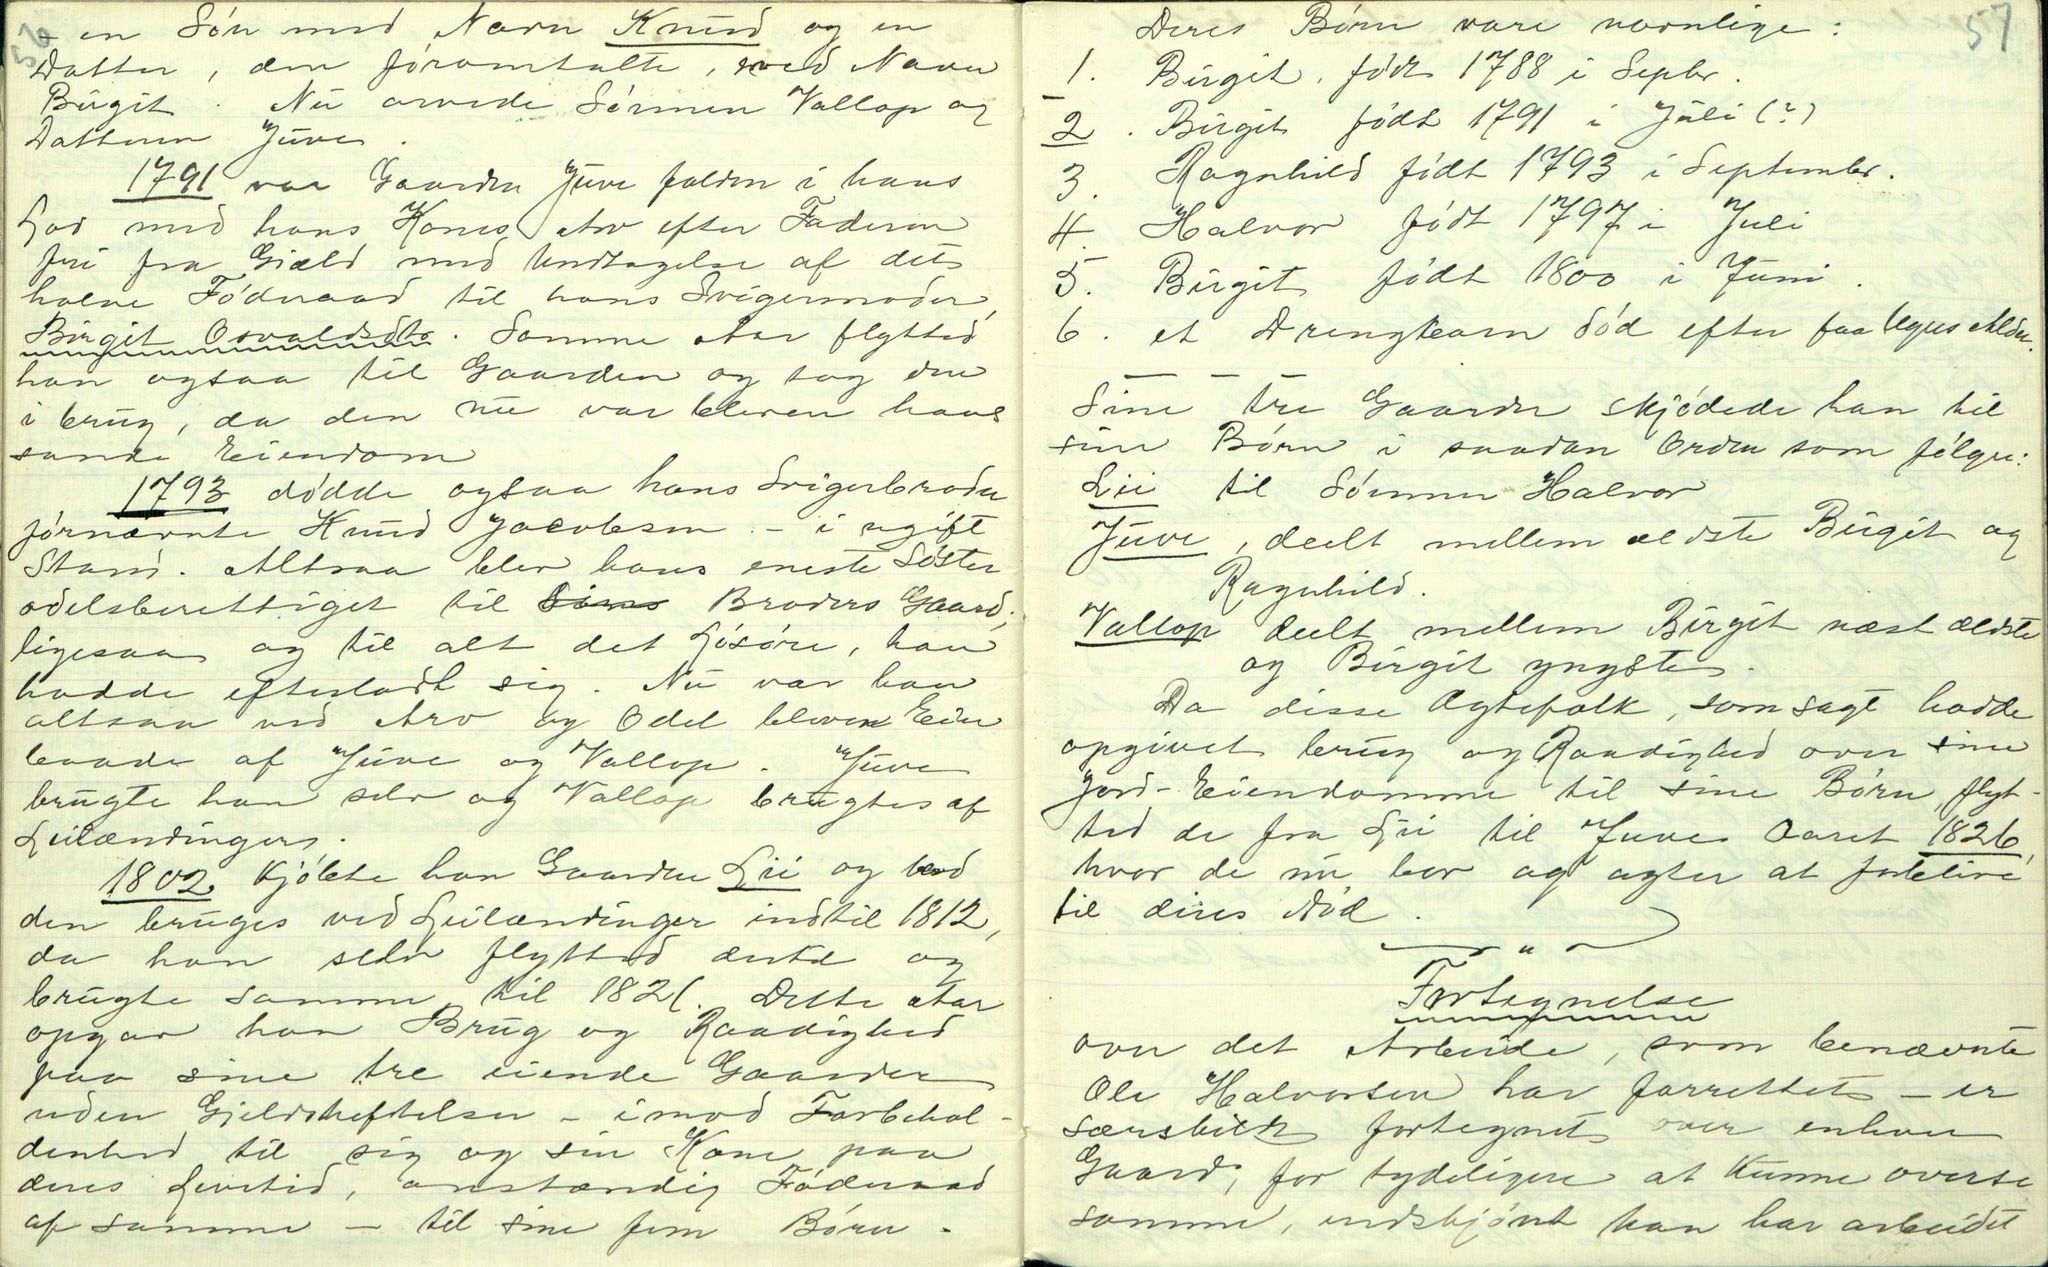 56
en Søn med Navn Knud og en
Datter, den føromtalte, ved Navn
Birgit. Nu arvede Sønnen Vallop og
Datteren Juve.
1791 var Gaarden Juve falden i hans
Lod med hans Kones Arv efter Faderen
fri fra Gjæld med Undtagelse af dets
halve Føderaad til hans Svigermoder,
Birgit Osvaldsdtr. Samme Aar flytted
han ogsaa til Gaarden og tog den
i brug, da den nu var bleven hans
sande Eiendom
1793 dødde ogsaa hans Svigerbroder
førnævnte Knud Jacobsen – i ugift
Stand. Altsaa blev hans eneste Søster
odelsberettiget til Sins Broders Gaard,
ligesaa og til alt det Løsøre, han
hadde efterladt sig. Nu var han
altsaa ved Arv og Odel bleven Eier
baade af Juve og Vallop. Juve
brugte han selv og Vallop brugtes af
Leilændinger.
1802 kjøbte han Gaarden Lii og lod
den bruges ved Leilændinger indtil 1812,
da han selv flytted did og
brugte samme til 1821. Dette Aar
opgav han Brug og Raadighed
paa sine tre eiende Gaarder
uden Gjeldsheftelser – imod Forbehol-
denhed til sig og sin Kone paa
deres Levetid, anstændig Føderaad
af samme – til sine fem Børn.
57
Deres Børn vare navnlige:
1. Birgit, født 1788 i Septbr.
2. Birgit født 1791 i Juli (?)
3. Ragnhild født 1793 i Septembr.
4. Halvor født 1797 i Juli
5. Birgit født 1800 i Juni.
6. et Drengebarn død efter faa Ugers Alder.
Sine tre Gaarder skjødede han til
sine Børn i saadan Orden som følger:
Lii til Sønnen Halvor
Juve, deelt mellem ældste Birgit og
Ragnhild.
Vallop deelt mellem Birgit næst ældste
og Birgit yngste.
Da disse Ægtefolk, som sagt hadde
opgivet brug og Raadighed over sine
Jord-Eiendomme til sine Børn, flyt-
ted de fra Lii til Juve Aaret 1826,
hvor de nu bor og agter at forblive
til deres Død.
Fortegnelse
over det Arbeide, som benævnte
Ole Halvorsen har forrettet – er
særskilt fortegnet over enhver
Gaard, for tydeligere at kunne overse
samme, endskjønt han har arbeidet